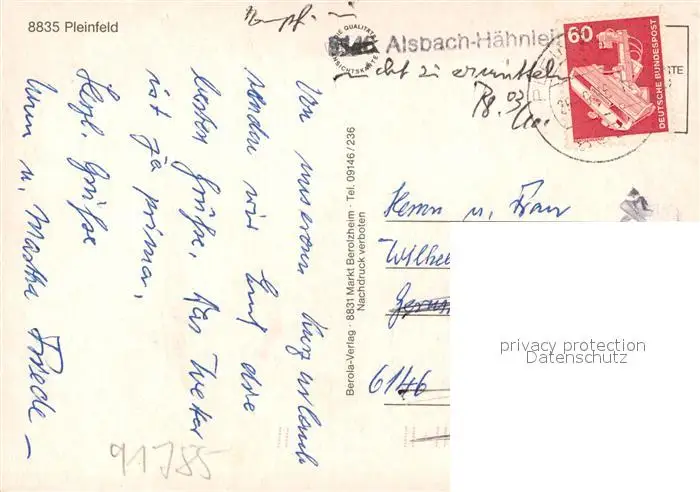 8835 Pleinfeld
Von unserem Kurzurlaub
senden wir Euch die
besten Grüße. Das Wetter
ist ja prima.
Herzl. Grüße
u. Martha
91785
Berola-Verlag · 8831 Markt Berolzheim · Tel. 09146/236
Nachdruck verboten
DIE QUALITÄTS
ANSICHTSKARTE
6146 Alsbach-Hähnlein
nicht zu ermitteln
60
DEUTSCHE BUNDESPOST
Herrn u. Frau
6146
privacy protection
Datenschutz